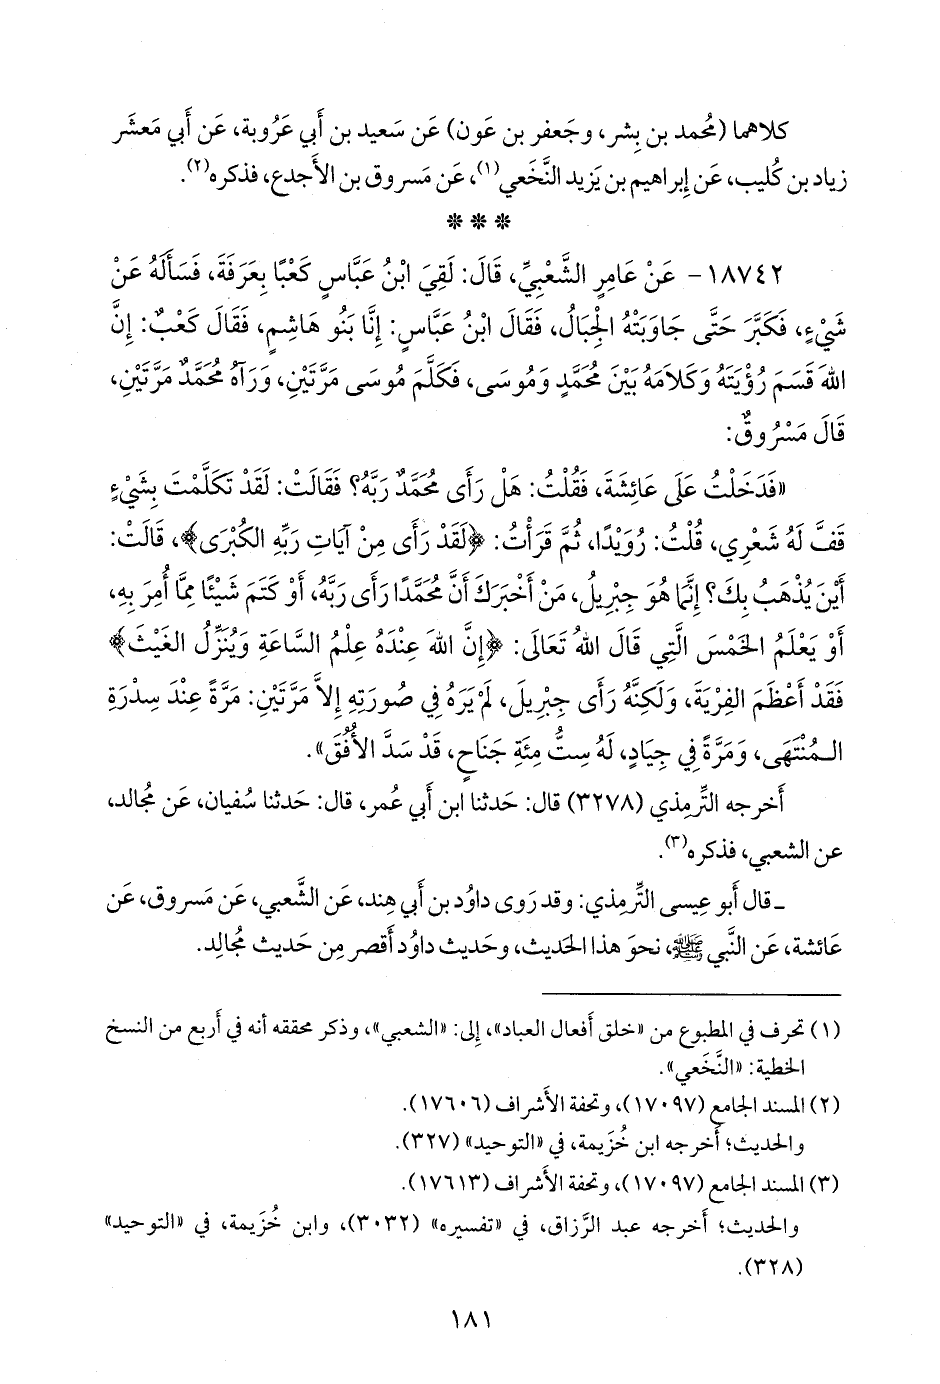 كلاهما (مُحمد بن بِشر، وجَعفر بن عَون) عَن سَعيد بن أَبي عَرُوبة، عَن أَبي مَعشَر
زياد بن كُليب، عَن إِبراهيم بن يَزيد النَّخَعي(١)، عَن مَسروق بن الأَجدع، فذكره(٢).
* * *
١٨٧٤٢- عَنْ عَامِرٍ الشَّعْبِيِّ، قَالَ: لَقِيَ ابْنُ عَبَّاسٍ كَعْبًا بِعَرَفَةَ، فَسَأَلَهُ عَنْ
شَيْءٍ، فَكَبَّرَ حَتَّى جَاوَبَتْهُ الْجِبَالُ، فَقَالَ ابْنُ عَبَّاسٍ: إِنَّا بَنُو هَاشِمٍ، فَقَالَ كَعْبٌ: إِنَّ
اللهَ قَسَمَ رُؤْيَتَهُ وَكَلَامَهُ بَيْنَ مُحَمَّدٍ وَمُوسَى، فَكَلَّمَ مُوسَى مَرَّتَيْنِ، وَرَآهُ مُحَمَّدٌ مَرَّتَيْنِ،
قَالَ مَسْرُوقٌ:
«فَدَخَلْتُ عَلَى عَائِشَةَ، فَقُلْتُ: هَلْ رَأَى مُحَمَّدٌ رَبَّهُ؟ فَقَالَتْ: لَقَدْ تَكَلَّمْتَ بِشَيْءٍ
قَفَّ لَهُ شَعْرِي، قُلْتُ: رُوَيْدًا، ثُمَّ قَرَأْتُ: ﴿لَقَدْ رَأَى مِنْ آيَاتِ رَبِّهِ الكُبْرَى﴾، قَالَتْ:
أَيْنَ يُذْهَبُ بِكَ؟ إِنَّمَا هُوَ جِبْرِيلُ، مَنْ أَخْبَرَكَ أَنَّ مُحَمَّدًا رَأَى رَبَّهُ، أَوْ كَتَمَ شَيْئًا مِمَّا أُمِرَ بِهِ،
أَوْ يَعْلَمُ الخَمْسَ الَّتِي قَالَ اللهُ تَعَالَى: ﴿إِنَّ اللهَ عِنْدَهُ عِلْمُ السَّاعَةِ وَيُنَزِّلُ الغَيْثَ﴾
فَقَدْ أَعْظَمَ الفِرْيَةَ، وَلَكِنَّهُ رَأَى جِبْرِيلَ، لَمْ يَرَهُ فِي صُورَتِهِ إِلاَّ مَرَّتَيْنِ: مَرَّةً عِنْدَ سِدْرَةِ
الـمُنْتَهَى، وَمَرَّةً فِي جِيَادٍ، لَهُ سِتُّ مِئَةِ جَنَاحٍ، قَدْ سَدَّ الأُفُقَ».
أَخرجه التِّرمِذي (٣٢٧٨) قال: حَدثنا ابن أَبي عُمر، قال: حَدثنا سُفيان، عَن مُجالد،
عن الشعبي، فذكره(٣).
ـ قال أَبو عِيسى التِّرمِذي: وقد رَوى داوُد بن أَبي هِند، عَن الشَّعبي، عَن مَسروق، عَن
عَائشة، عَن النَّبي ﷺ، نحوَ هذا الحَديث، وحَديث داوُد أَقصر مِن حَديث مُجالِد.
(١) تحرف في المطبوع من «خلق أَفعال العباد»، إِلى: «الشعبي»، وذكر محققه أنه في أَربع من النسخ
الخطية: «النَّخَعي».
(٢) المسند الجامع (١٧٠٩٧)، وتحفة الأَشراف (١٧٦٠٦).
والحديث؛ أَخرجه ابن خُزَيمة، في «التوحيد» (٣٢٧).
(٣) المسند الجامع (١٧٠٩٧)، وتحفة الأَشراف (١٧٦١٣).
والحديث؛ أَخرجه عبد الرَّزاق، في «تفسيره» (٣٠٣٢)، وابن خُزَيمة، في «التوحيد»
(٣٢٨).
١٨١